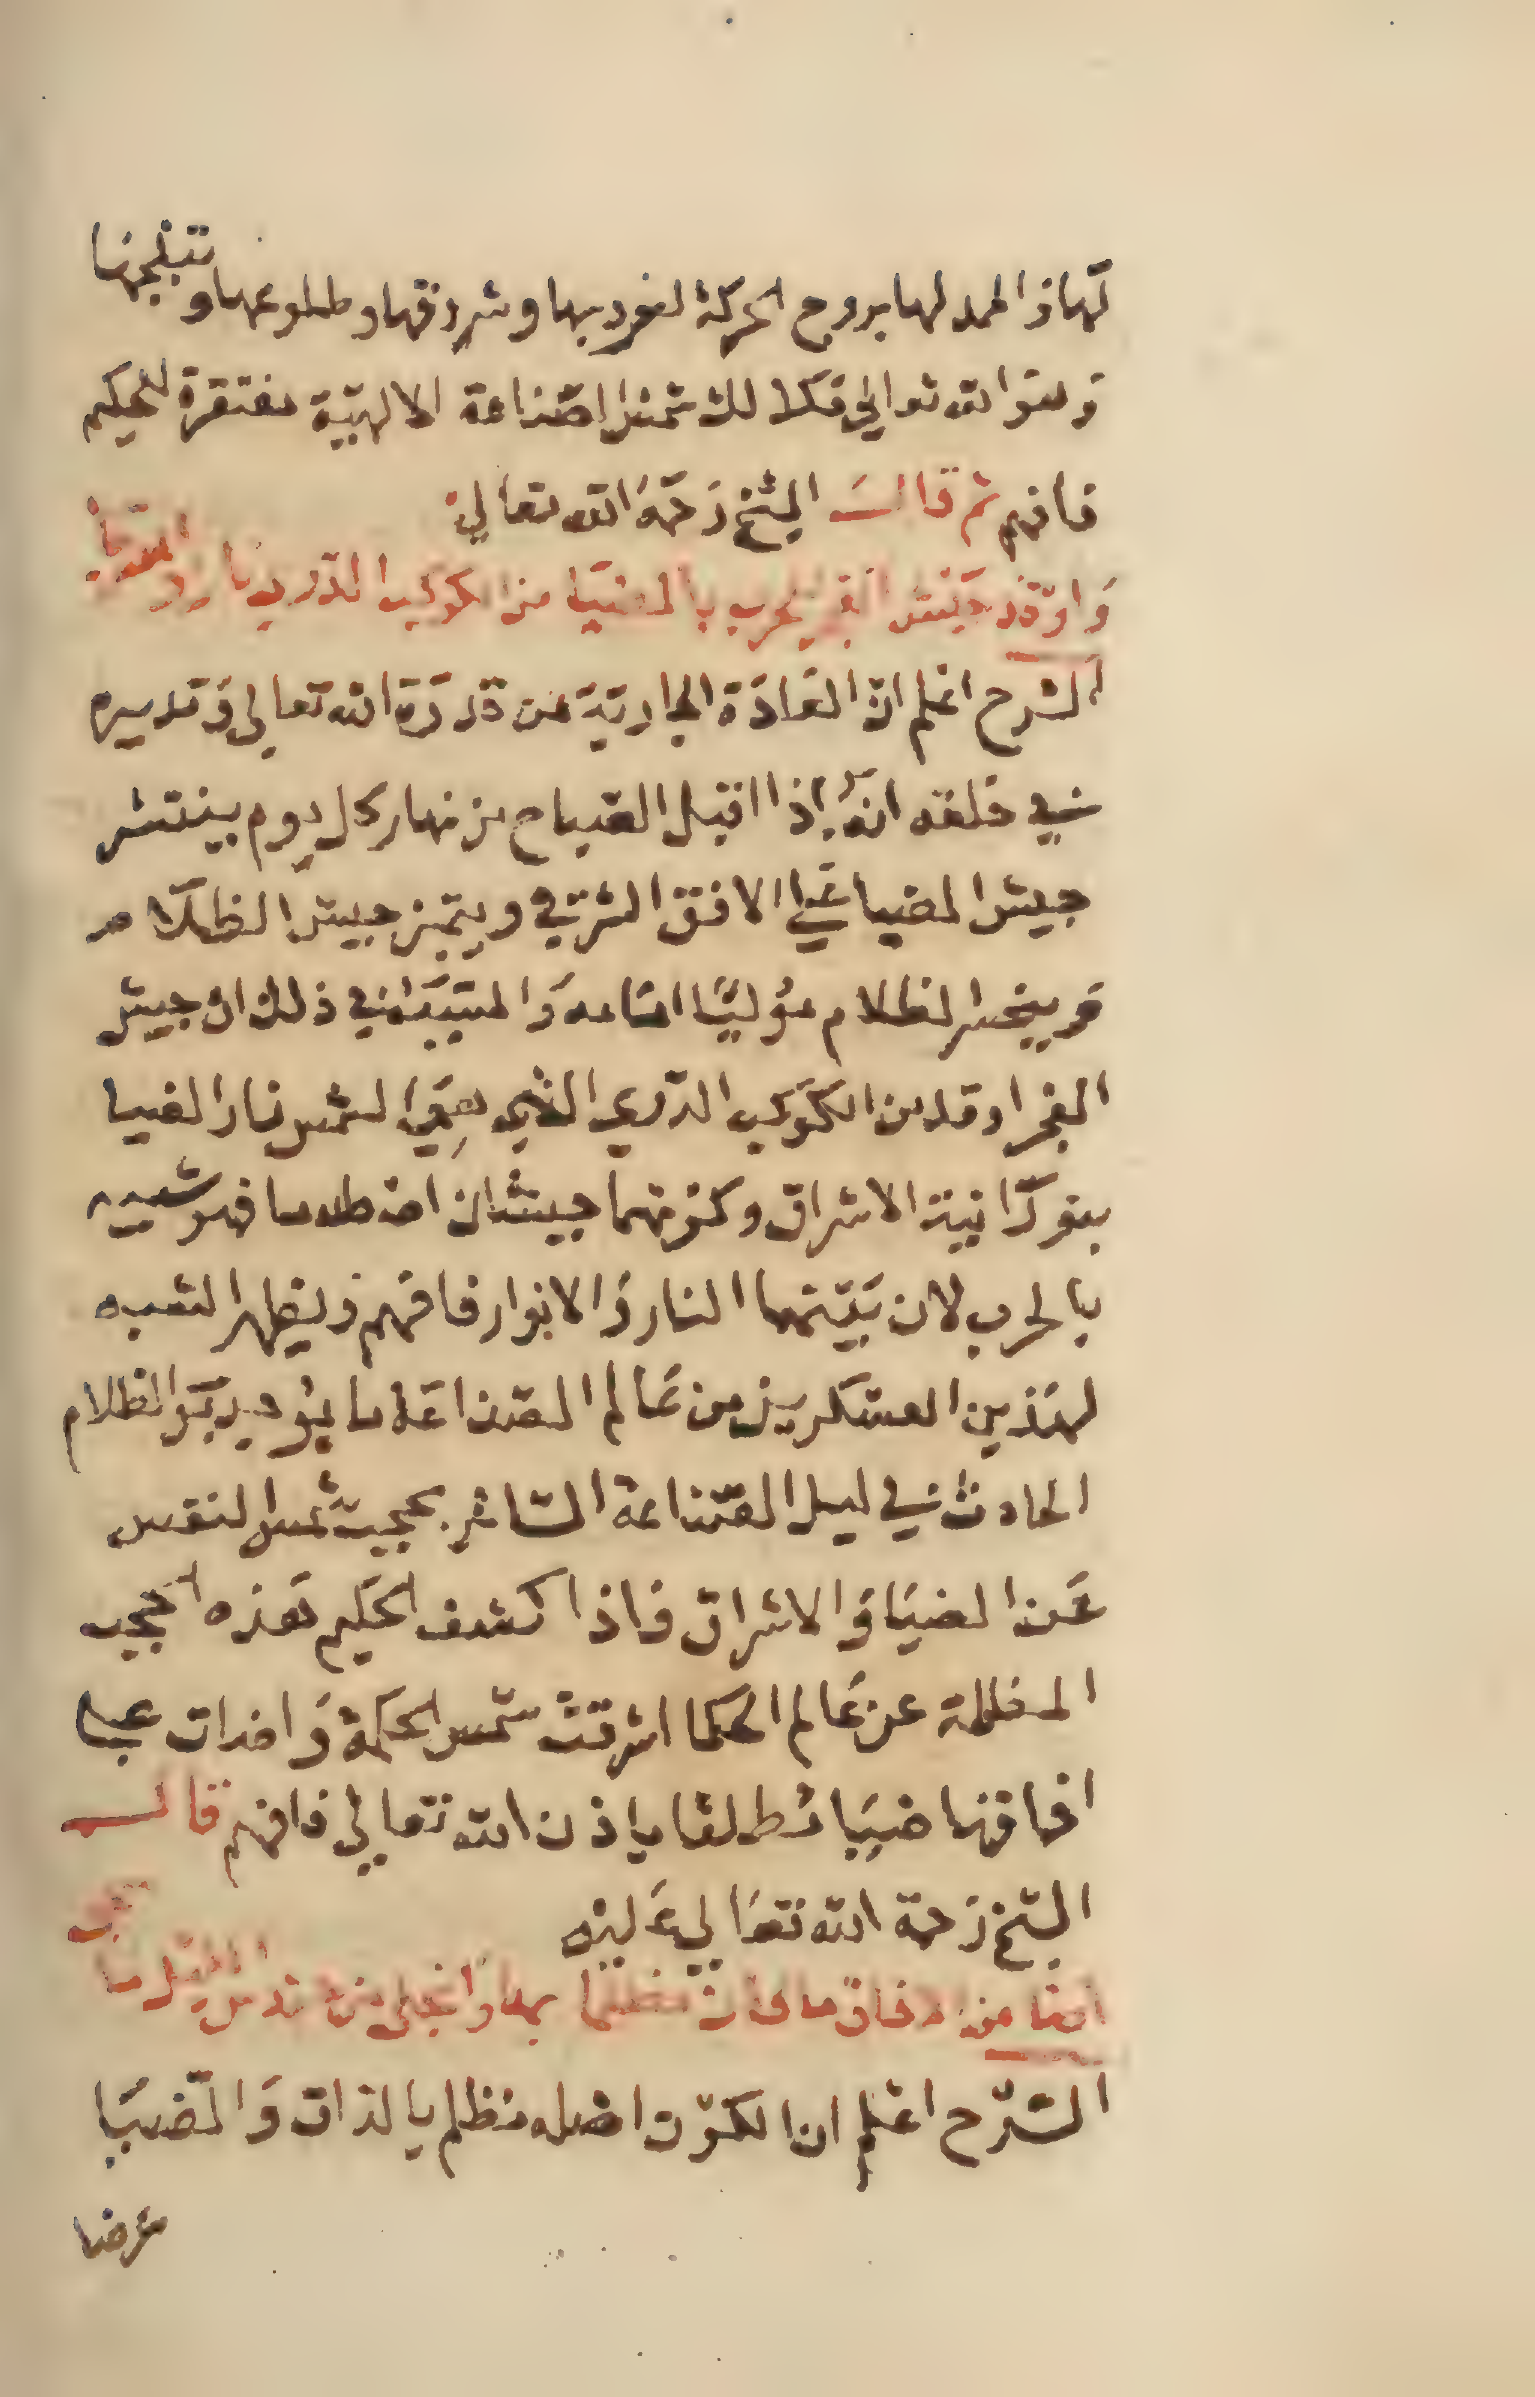 لها ذالمد لها بروح الحركة لغروبها وشروقها وطلوعها وتبلجها
الله توالي فكذلك شمس الصناعة الالهية مفتقرة للحكيم
فافهم ثم قال الشيخ رحمه الله تعالي
واوقد جيش الفجر للحرب بالضيا من الكوكب الدري نار
الشرح اعلم ان العادة الجارية من قدرة الله تعالي وتدبيره
في خلقه انه إذا اقبل الصباح من نهار كل يوم ينتشر
جيش الضيا علي الافق الشرقي ويتميز جيش الظلام
الظلام موليا امامه والسبب في ذلك ان جيش
الفجر اوقد من الكوكب الدري الذي هي الشمس نار الضيا
بنورانية الاشراق وكونهما جيشان فهو شبيه
بالحرب لان بينهما النار والانوار فافهم ونظير الشبه
لهذين العسكرين من عالم الصناعة ما الظلام
الحادث في ليل الصناعة الساتر بحجب شمس النفس
عن الضيا والاشراق فاذا كشف الحكيم هذه الحجب
المظلمة عن عالم الحكما اشرقت شمس الحكمة واضات علي
افاقها ضيا مطلقا باذن الله تعالي فافهم قال
الشيخ رحمة الله تعالي عليه
اضا من الافاق ما كان مظلما بها وانجلي من الليل ما
الشرح اعلم ان الكون اصله مظلم بالذات والضيا
عرضا